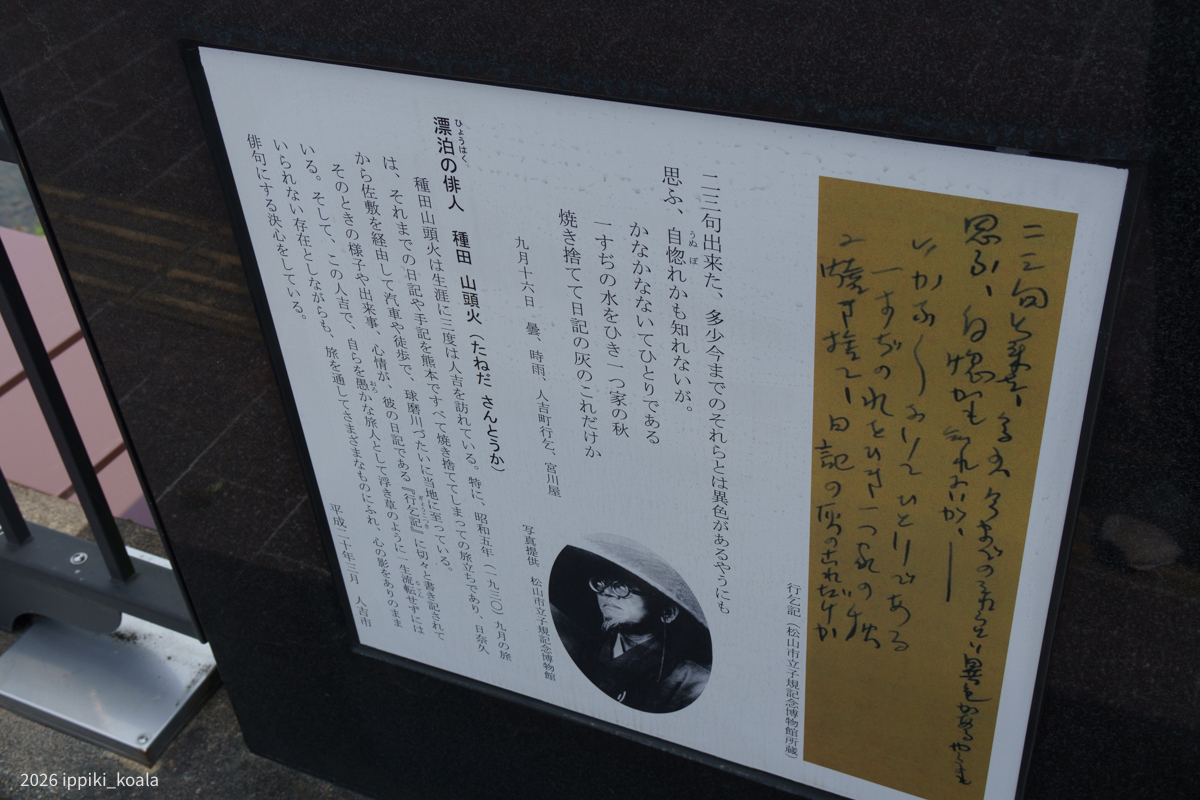 二三句出来た、多少今までのそれらとは異色があるやうにも
思ふ、自惚れかも知れないが。
かなかなないてひとりである
一すぢの水をひき一つ家の秋
焼き捨てて日記の灰のこれだけか
九月十六日 曇、時雨、人吉町行乞、宮川屋
行乞記（松山市立子規記念博物館所蔵）
写真提供 松山市立子規記念博物館
漂泊の俳人 種田 山頭火（たねだ さんとうか）
種田山頭火は生涯に三度は人吉を訪れている。特に、昭和五年（一九三〇）九月の旅
は、それまでの日記や手記を熊本ですべて焼き捨ててしまっての旅立ちであり、日奈久
から佐敷を経由して汽車や徒歩で、球磨川づたいに当地に至っている。
そのときの様子や出来事、心情が、彼の日記である『行乞記』に切々と書き記されて
いる。そして、この人吉で、自らを愚かな旅人として浮き草のように一生流転せずには
いられない存在としながらも、旅を通してさまざまなものにふれ、心の影をありのまま
俳句にする決心をしている。
平成二十年三月 人吉市
2026 ippiki_koala